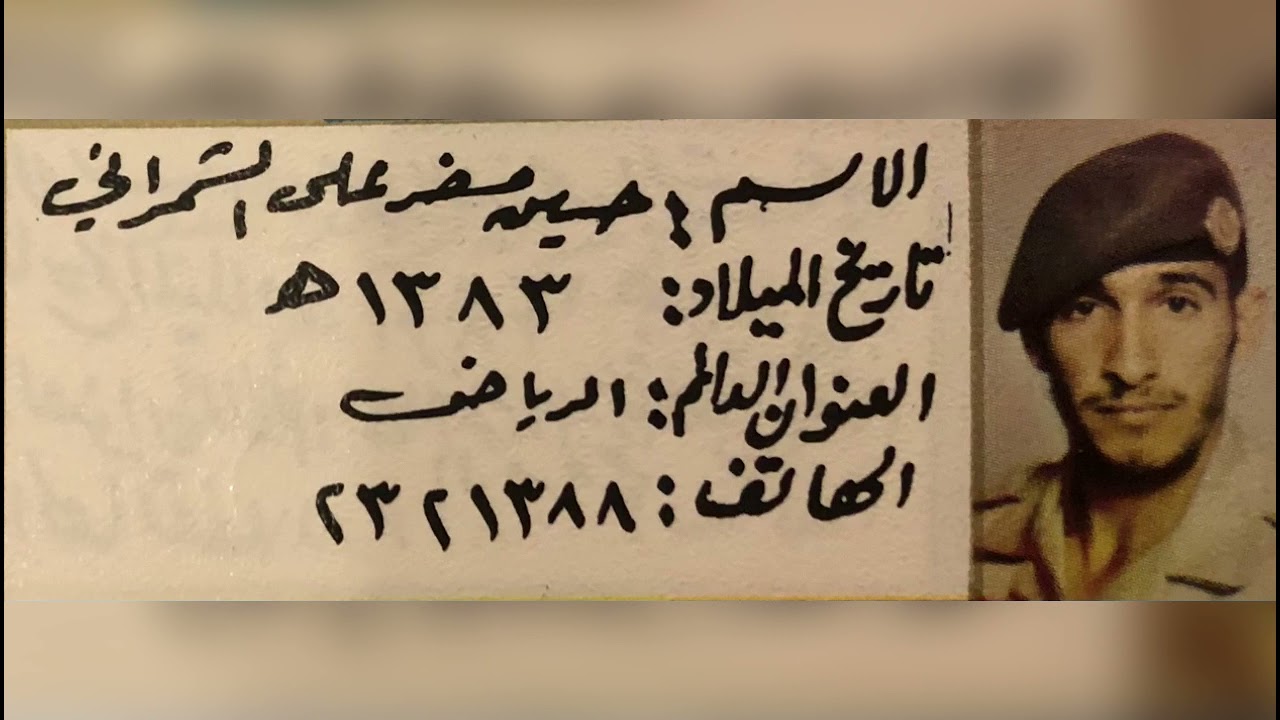 الاسم : حسين مسفر علي الشمراني
تاريخ الميلاد: ١٣٨٣ ه
العنوان الدائم: الرياض
الهاتف: ٢٣٢١٣٨٨